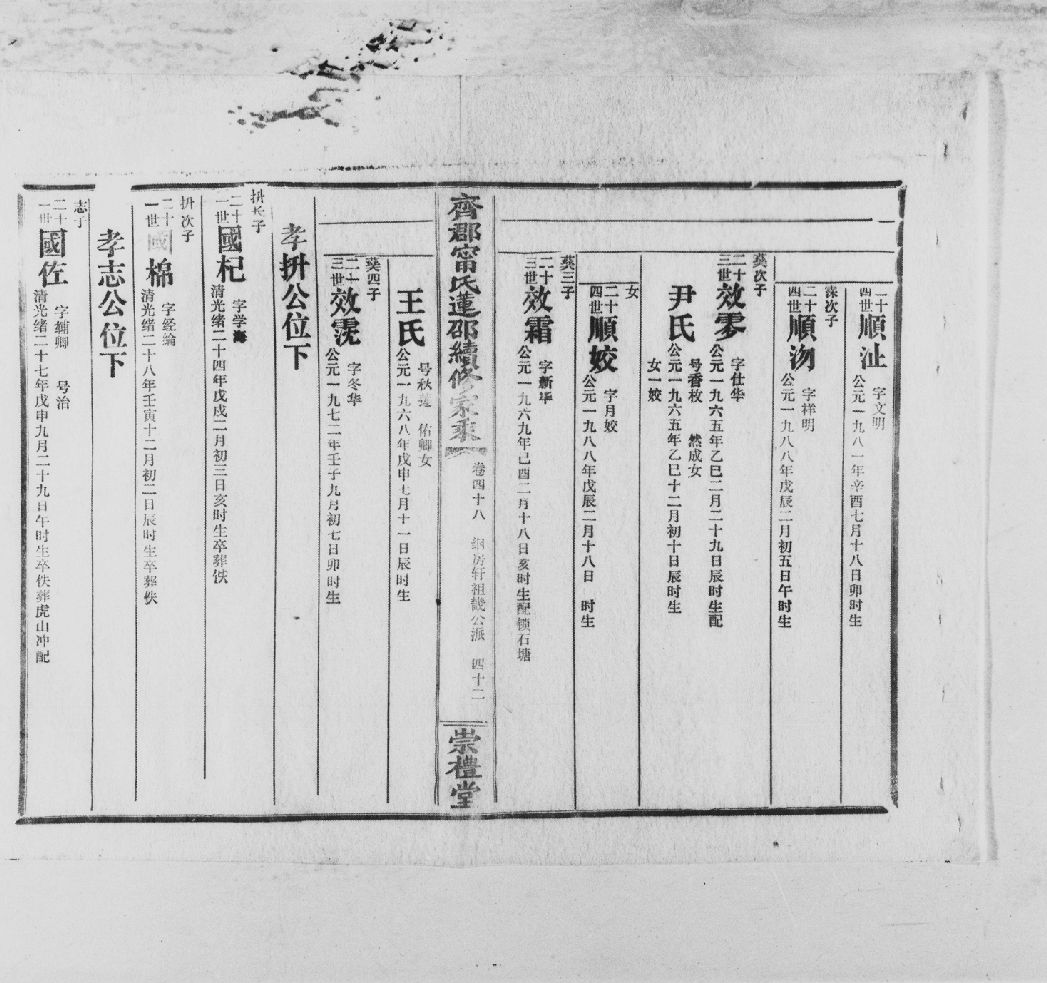 二十四世 順沚 字文明
公元一九八一年辛酉七月十八日卯时生
葇次子
二十四世 順沕 字祥明
公元一九八八年戊辰二月初五日午时生
葵次子
二十三世 效雩 字仕华
公元一九六五年乙巳二月二十九日辰时生配
尹氏 号香枚 然成女
公元一九六五年乙巳十二月初十日辰时生
女一姣
女
二十四世 順姣 字月姣
公元一九八八年戊辰二月十八日 时生
葵三子
二十三世 效霜 字新华
公元一九六九年己酉二月十八日亥时生配锁石塘
齊郡甯氏蓮邵續修家乘 卷四十八 房轩祖畿公派 四十二 崇禮堂
王氏 号秋莲 佑卿女
公元一九六八年戊申七月十一日辰时生
葵四子
二十三世 效霓 字冬华
公元一九七二年壬子九月初七日卯时生
孝拼公位下
拼长子
二十一世 國杞 字学海
清光绪二十四年戊戌二月初三日亥时生卒葬佚
拼次子
二十一世 國棉 字经纶
清光绪二十八年壬寅十二月初二日辰时生卒葬佚
孝志公位下
志子
二十一世 國佐 字辅卿 号治
清光绪二十七年戊申九月二十九日午时生卒佚葬虎山冲配